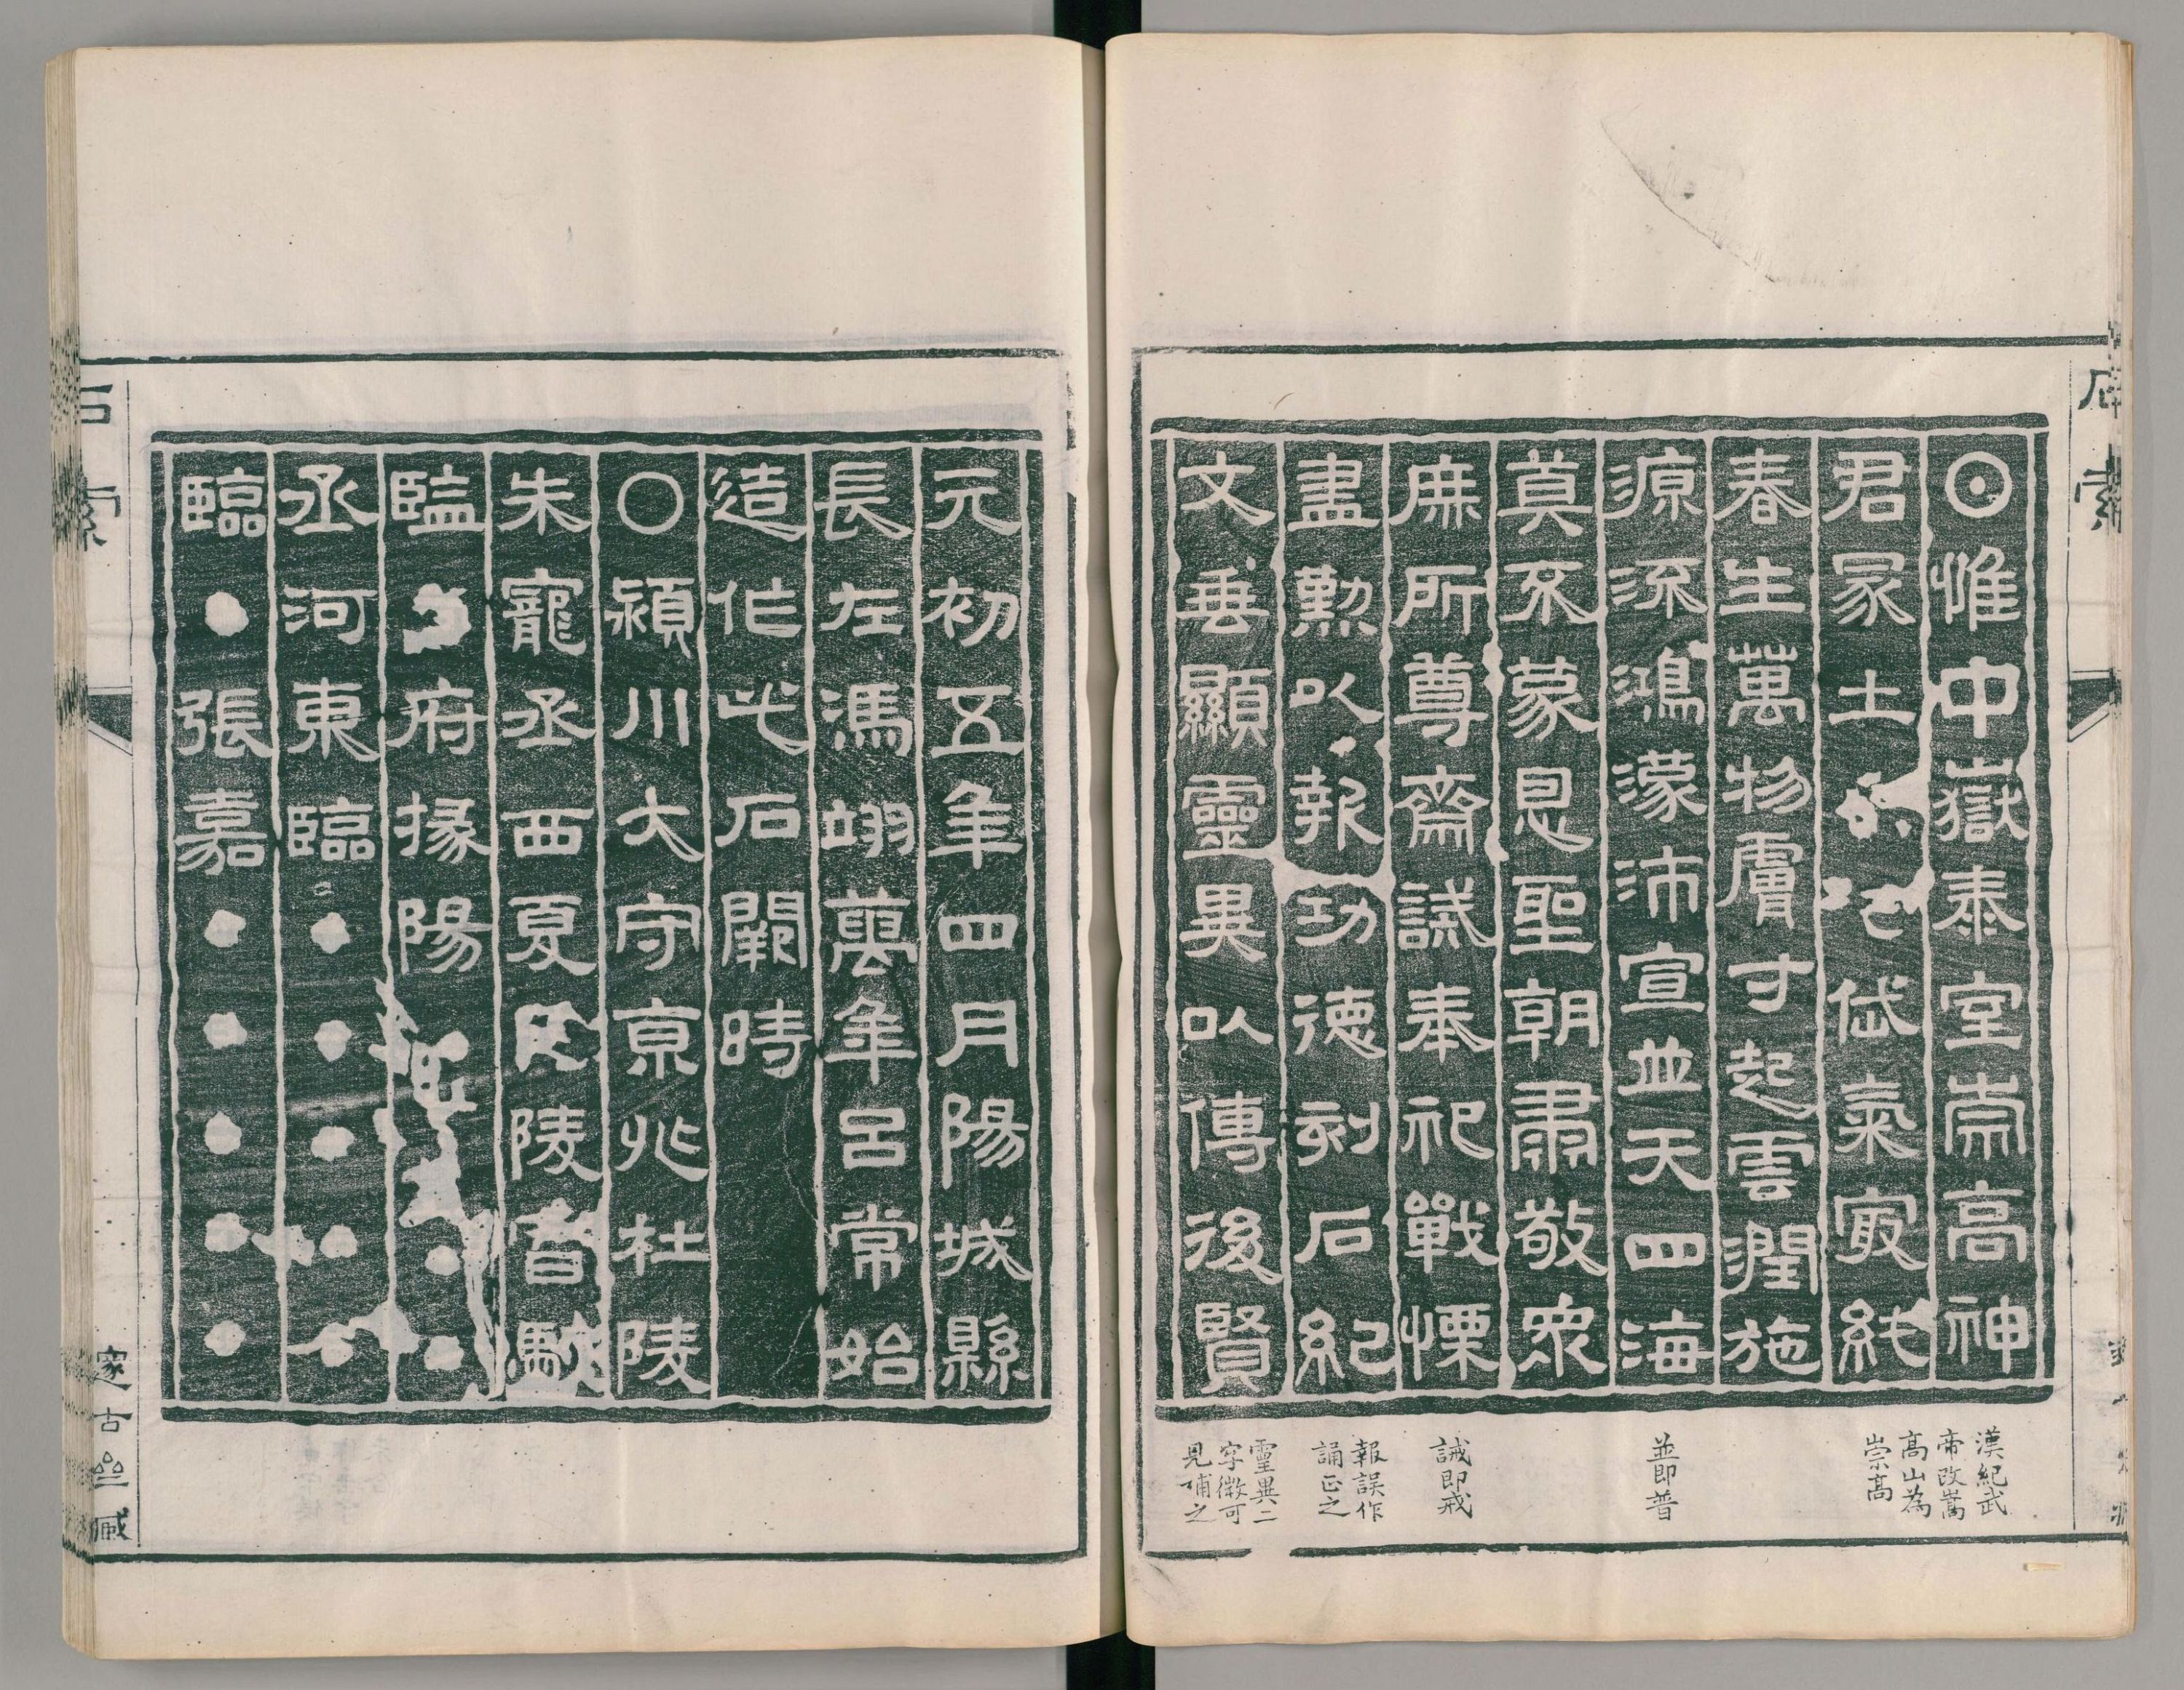 惟中嶽泰室崇高神
君冢土
岱氣寂純
春生萬物膚寸起雲潤施
源流鴻濛沛宣並天四海
莫不蒙恩聖朝肅敬眾
庶所尊齋誡奉祀戰慄
盡勲以報功德刻石紀
文垂顯靈異以傳後賢
漢紀武
帝改嵩
高山為
崇高
並即普
誡即戒
報誤作
誦正之
靈異二
字微可
見補之
元初五年四月陽城縣
長左馮翊萬年呂常始
造作此石闕時
潁川大守京兆杜陵
朱寵丞西夏
陵
監
府掾陽
丞河東臨
臨
張嘉
石索
邃古
藏